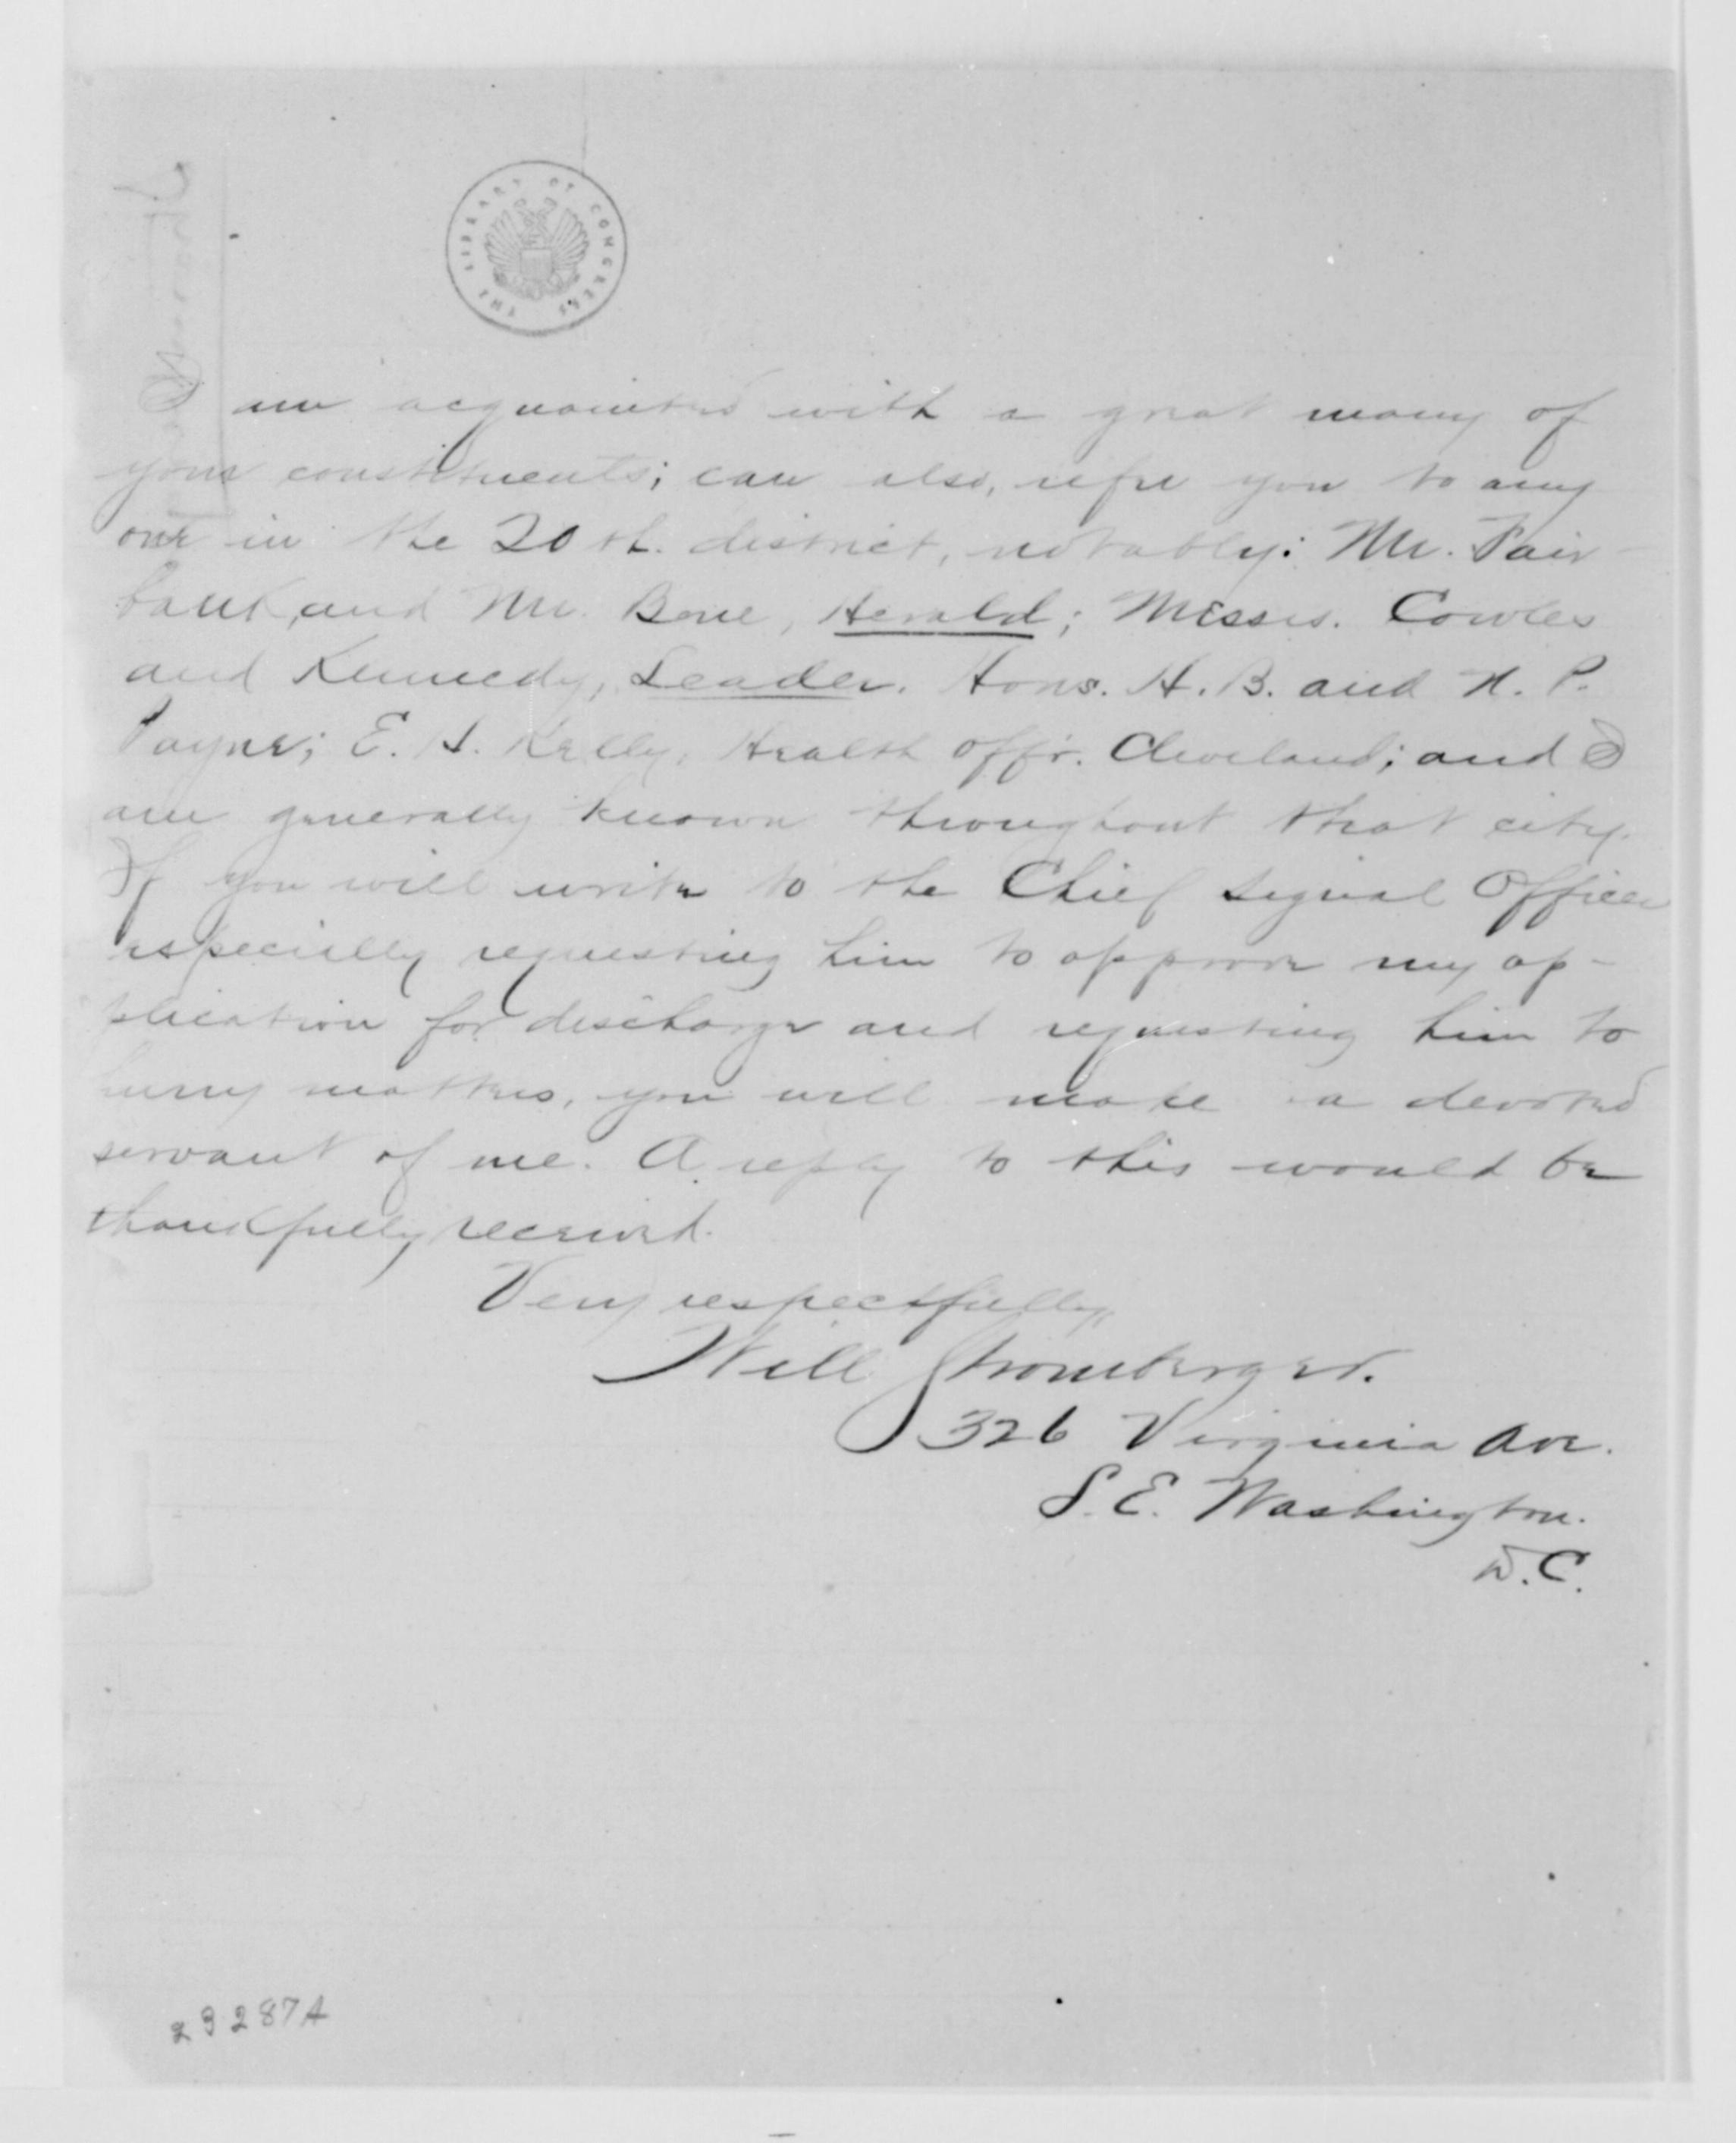 THE LIBRARY OF CONGRESS
I am acquainted with a great many of
your constituents; can also, refer you to any
one in the 20th. district, notably: Mr. Fair-
bank, and Mr. Bone, Herald; Messrs. Cowles
and Kennedy, Leader. Hons. H. B. and N. P.
Payne; E. H. Kelly, Health Offr. Cleveland; and I
am generally known throughout that city.
If you will write to the Chief Signal Officer
especially requesting him to approve my ap-
plication for discharge and requesting him to
hurry matters, you will make a devoted
servant of me. A reply to this would be
thankfully received.
Very respectfully,
Will Stromberger.
326 Virginia Ave.
S. E. Washington.
D.C.
29287A